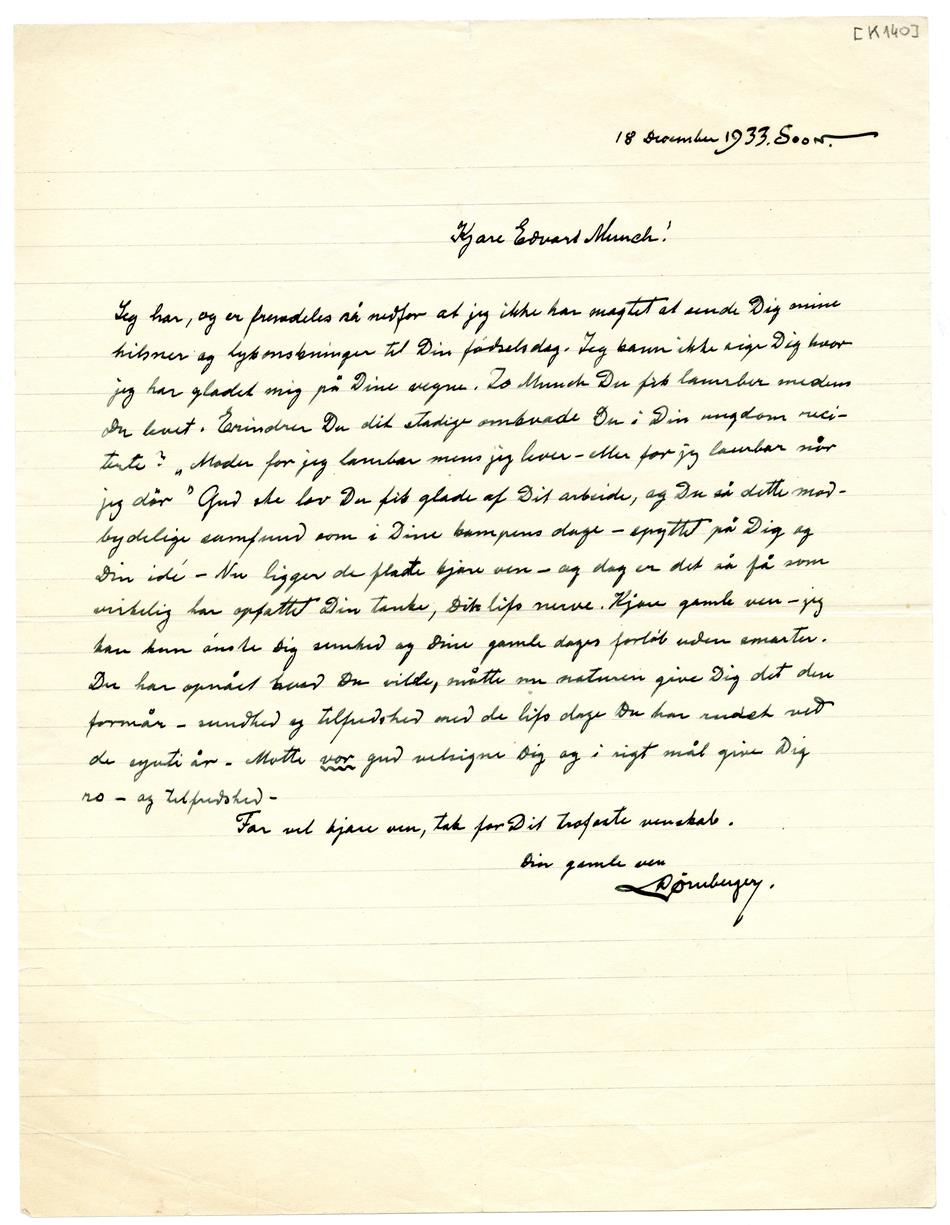 [K140]
18 December 1933. Soon.
Kjære Edvard Munch!
Jeg har, og er fremdeles så nedfor at jeg ikke har magtet at sende Dig mine
hilsner og lykønskninger til Din fødselsdag. Jeg kann ikke sige Dig hvor
jeg har glædet mig på Dine vegne. Jo Munch Du fik laurbær medens
Du levet. Erindrer Du dit stadige omkvæde Du i Din ungdom reci-
terte? „Moder for jeg laurbær mens jeg lever – eller for jeg laurbær når
jeg dör" Gud ske lov Du fik glæde af Dit arbeide, og Du så dette mod-
bydelige samfund som i Dine kampens dage – spyttet på Dig og
Din idé – Nu ligger de flade kjære ven – og dog er det så få som
virkelig har opfattet Din tanke, Dit lifs nerve. Kjære gamle ven – jeg
kan kun önske Dig sunhed og Dine gamle dages forlöb uden smerter.
Du har opnået hvad Du vilde, måtte nu naturen give Dig det den
formår – sundhed og tilfredshed med de lifs dage Du har ved
de sytti år – Motte vor gud velsigne Dig og i rigt mål give Dig
ro – og tilfredshed –
Far vel kjære ven, tak for Dit trofaste venskab.
Din gamle ven
Dørnberger.